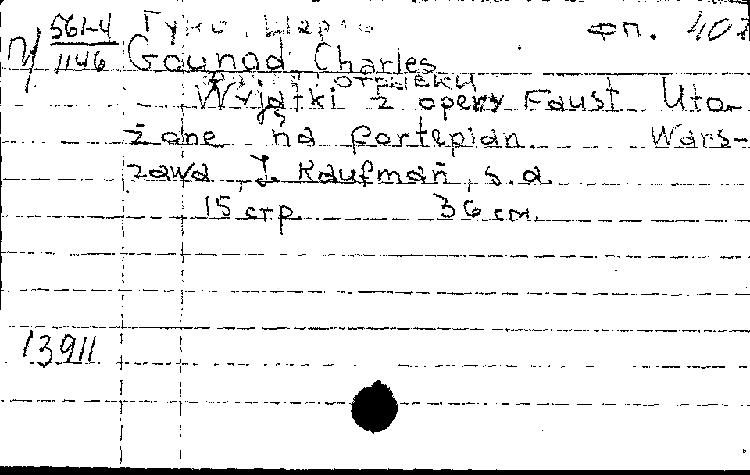 561-4 Гуно, Шарль фп. 402
И/ 1146 Gounod Charles
отрывки
Wyjątki z opery Faust Uło-
żone na fortepian Wars-
zawa, J. Kaufman, s.a.
15 стр. 36 см.
13911